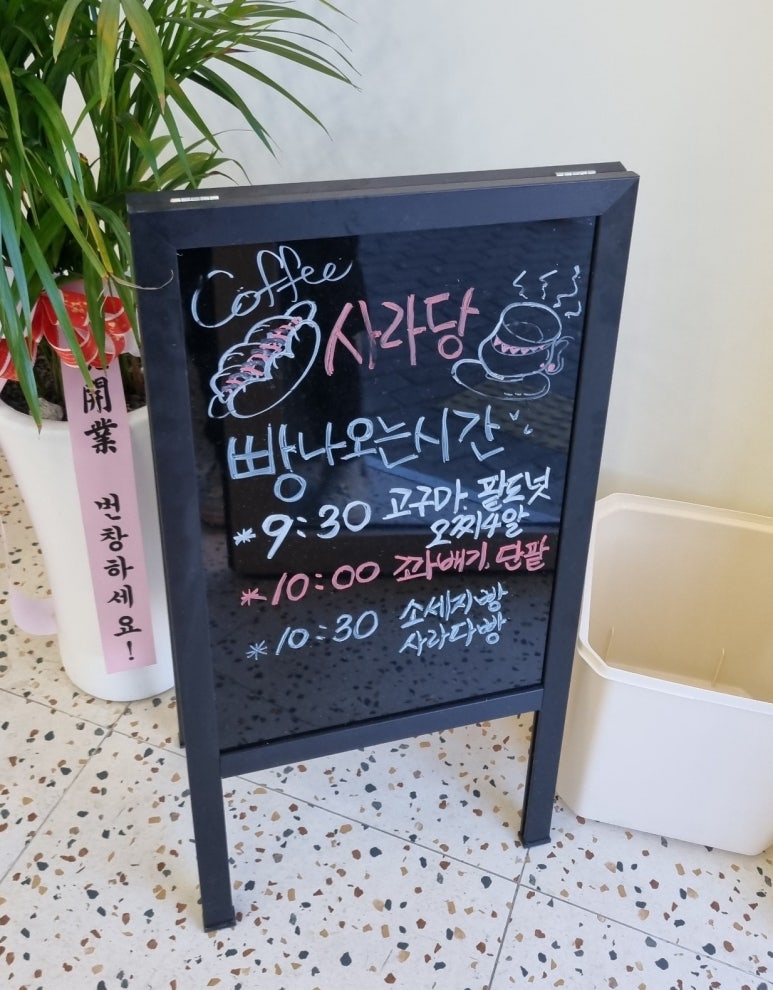 Coffee
사라당
빵나오는시간
*9:30 고구마. 팥도넛
오찌4알
*10:00 꽈배기. 단팥
*10:30 소세지빵
사라다빵
開業 번창하세요!